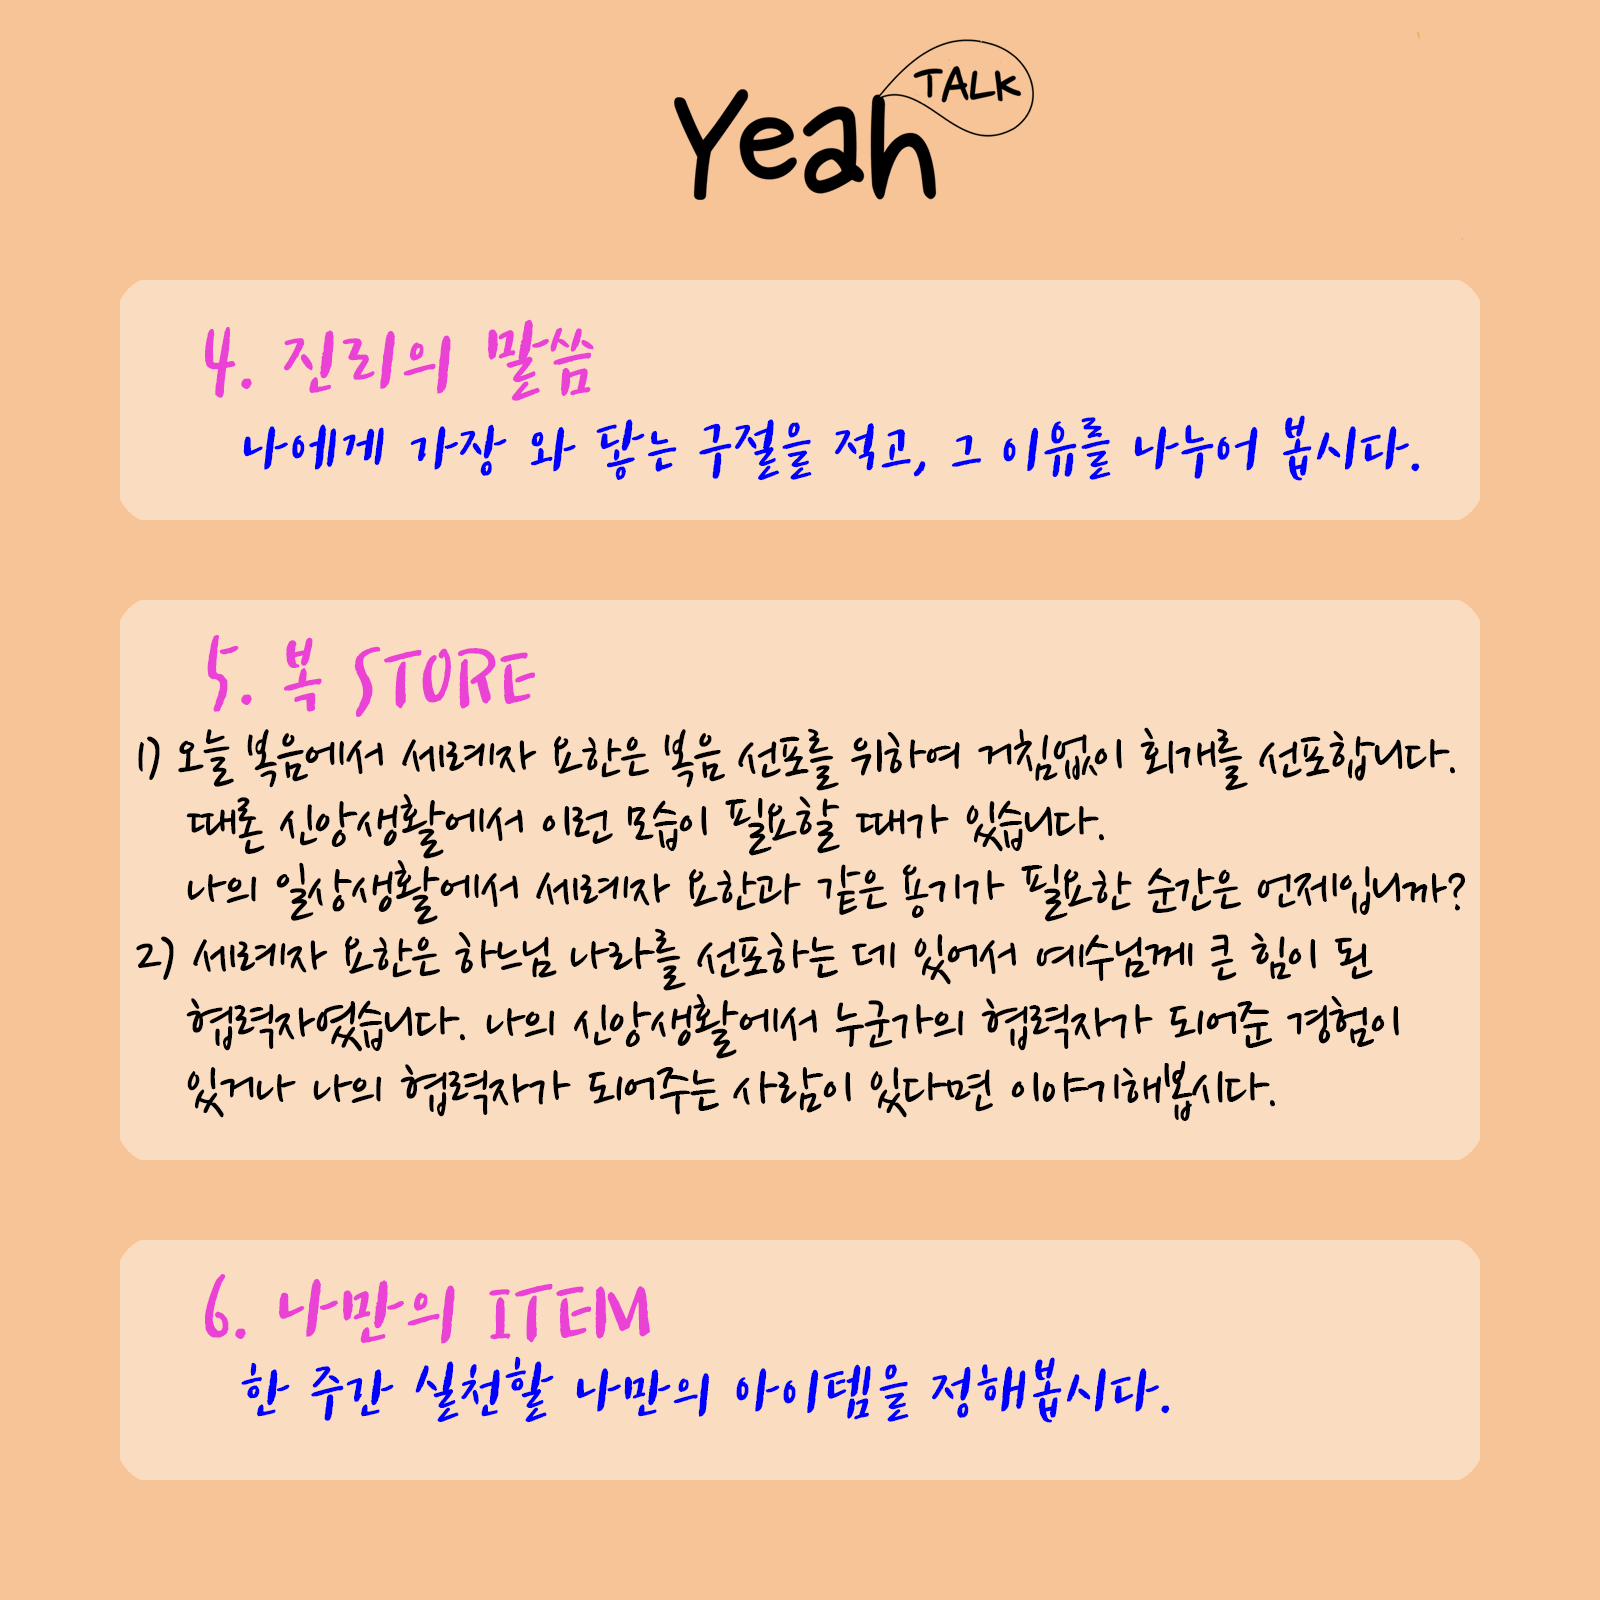 Yeah TALK
4. 진리의 말씀
나에게 가장 와 닿는 구절을 적고, 그 이유를 나누어 봅시다.
5. 복 STORE
1) 오늘 복음에서 세례자 요한은 복음 선포를 위하여 거침없이 회개를 선포합니다.
때론 신앙생활에서 이런 모습이 필요할 때가 있습니다.
나의 일상생활에서 세례자 요한과 같은 용기가 필요한 순간은 언제입니까?
2) 세례자 요한은 하느님 나라를 선포하는 데 있어서 예수님께 큰 힘이 된
협력자였습니다. 나의 신앙생활에서 누군가의 협력자가 되어준 경험이
있거나 나의 협력자가 되어주는 사람이 있다면 이야기해봅시다.
6. 나만의 ITEM
한 주간 실천할 나만의 아이템을 정해봅시다.